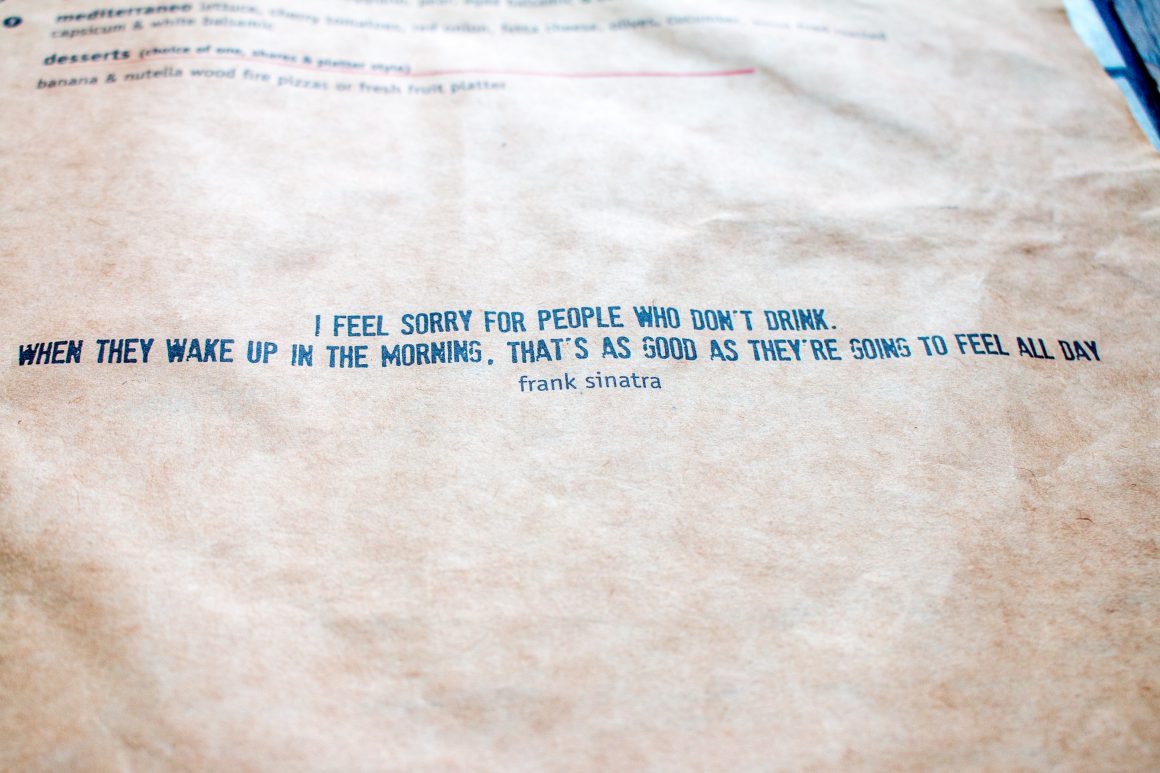 mediterraneo lettuce, cherry tomatoes, red onion, fetta cheese, olives, cucumber,
capsicum & white balsamic
desserts (choice of one, shares & platter style)
banana & nutella wood fire pizzas or fresh fruit platter
I FEEL SORRY FOR PEOPLE WHO DON'T DRINK.
WHEN THEY WAKE UP IN THE MORNING, THAT'S AS GOOD AS THEY'RE GOING TO FEEL ALL DAY
frank sinatra